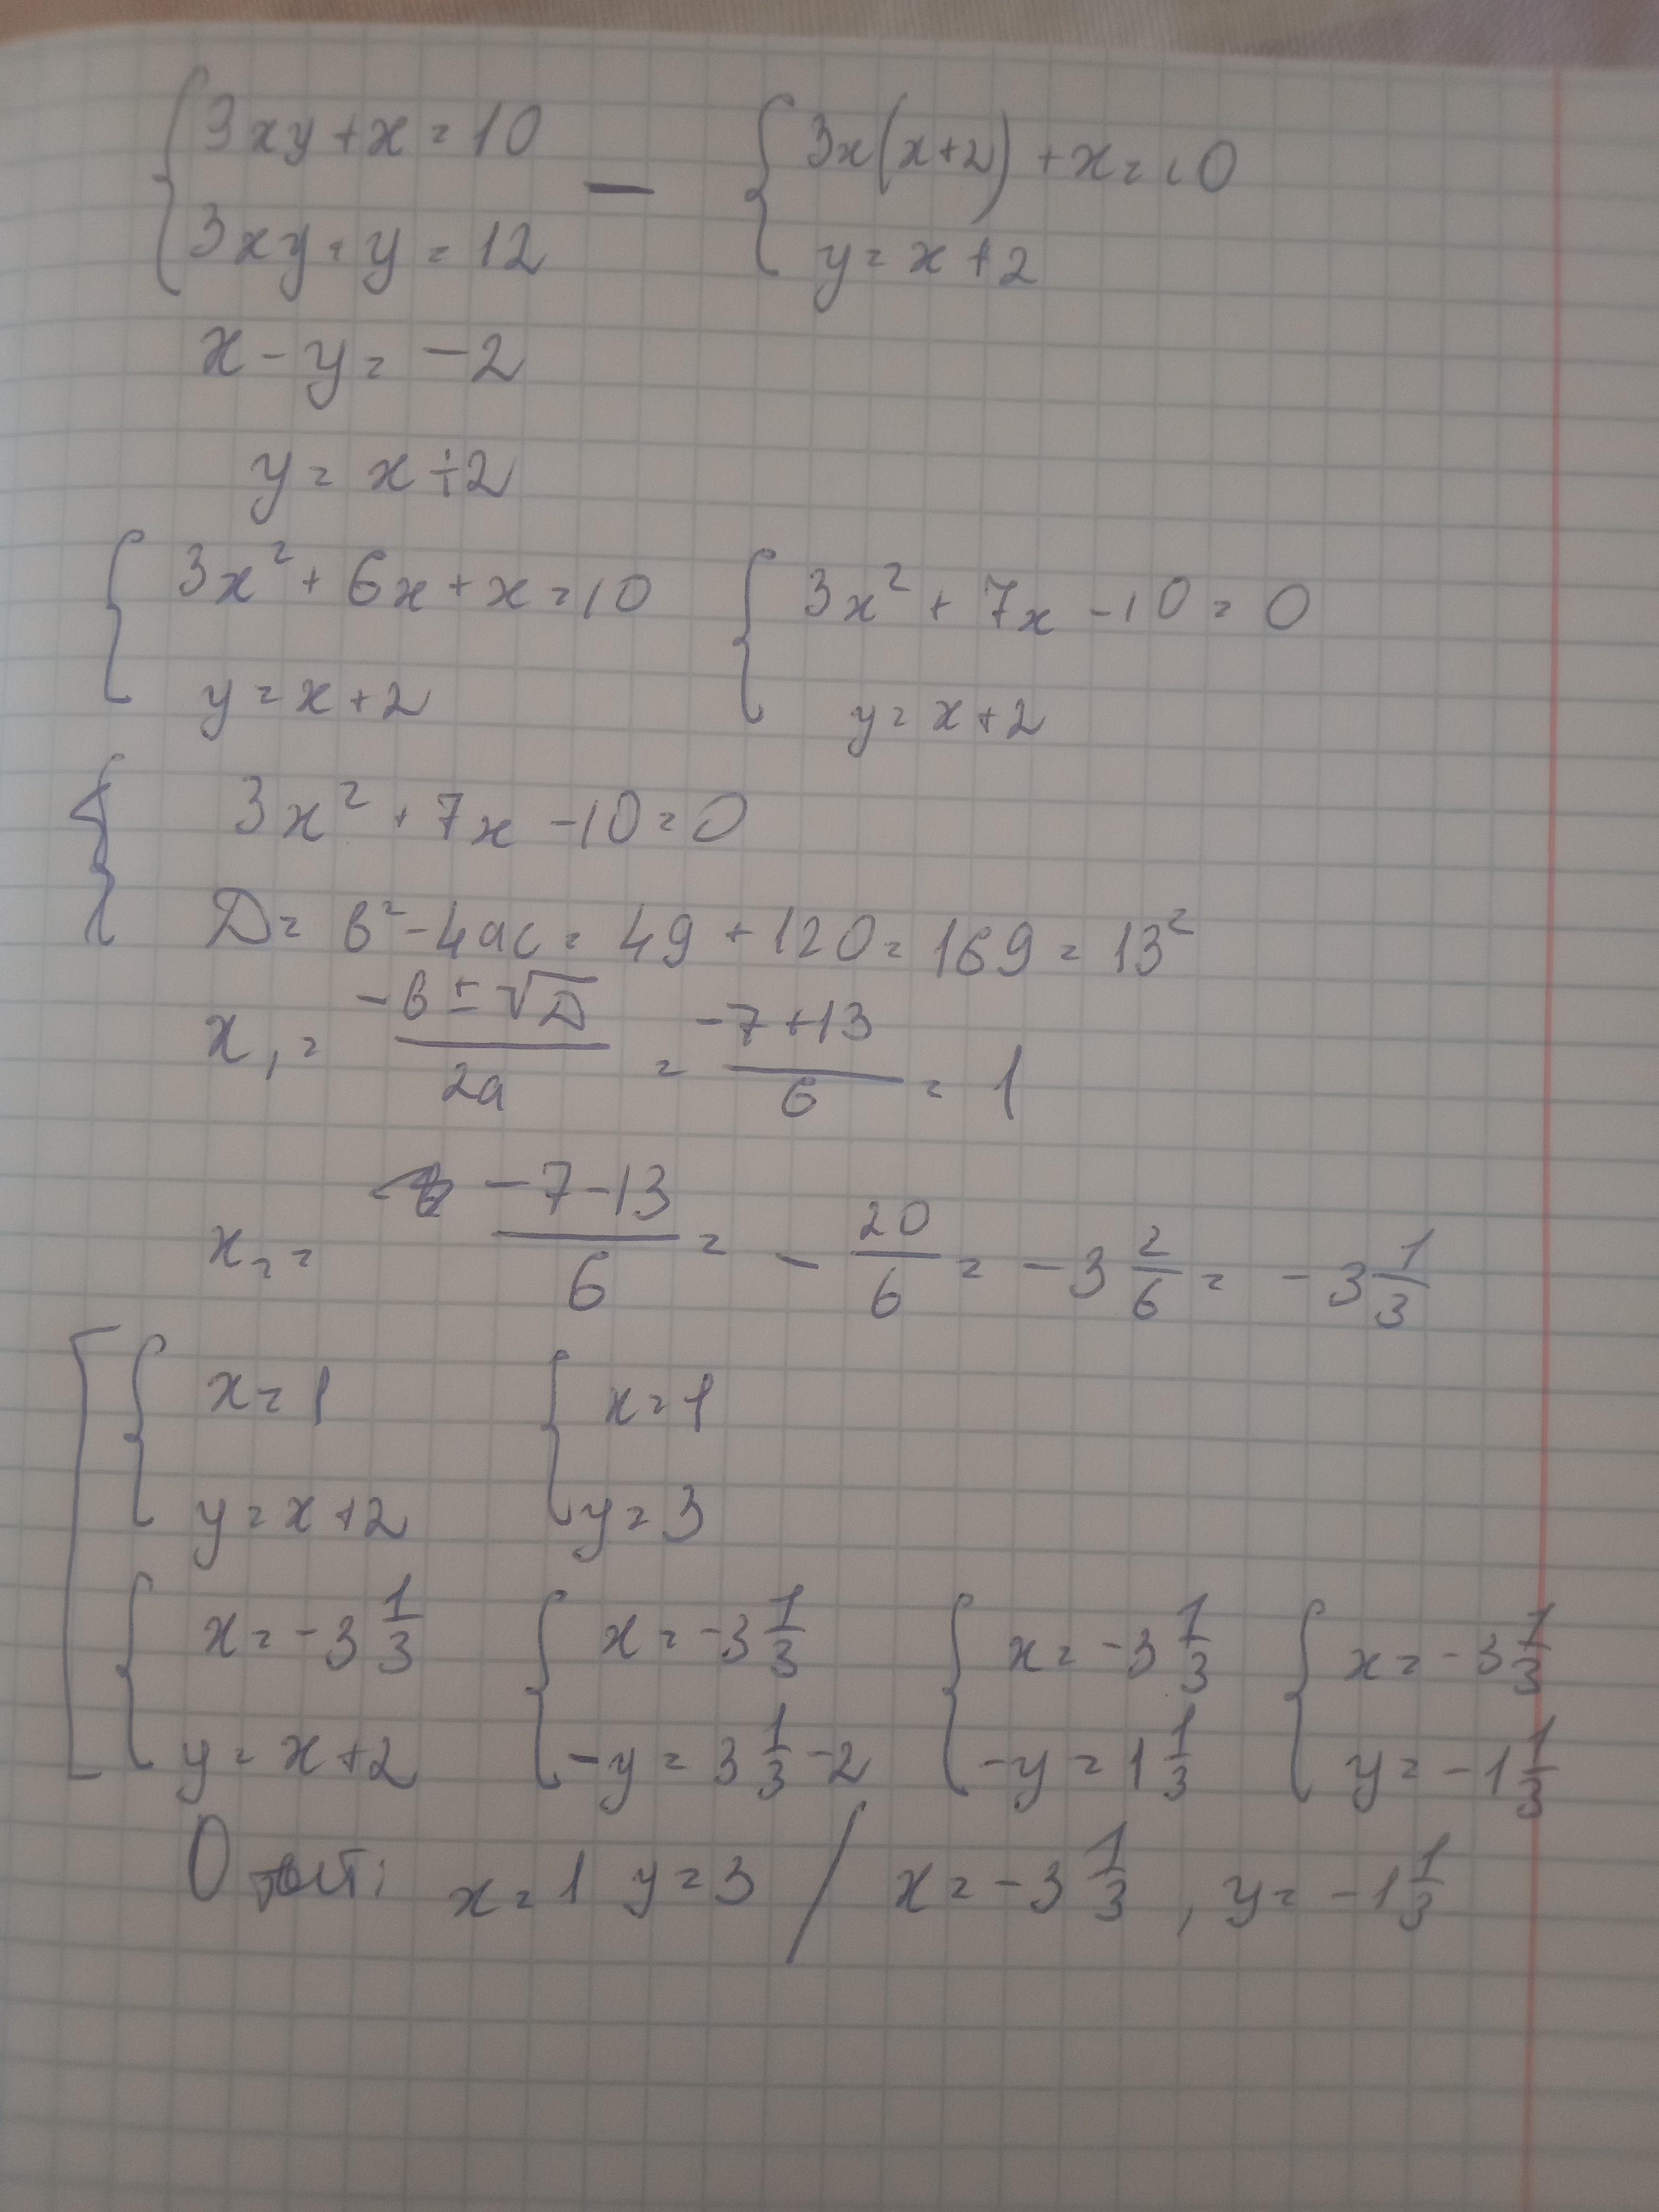 { 3xy + x = 10 — { 3x(x+2) + x = 10
3xy + y = 12 y = x + 2
x - y = -2
y = x + 2
{ 3x² + 6x + x = 10 { 3x² + 7x - 10 = 0
y = x + 2 y = x + 2
{ 3x² + 7x - 10 = 0
D = b² - 4ac = 49 + 120 = 169 = 13²
x₁ = (-b ± √D)/2a = (-7+13)/6 = 1
x₂ = (-7-13)/6 = - 20/6 = -3 2/6 = -3 1/3
[ { x = 1 { x = 1
y = x + 2 y = 3
{ x = -3 1/3 { x = -3 1/3 { x = -3 1/3 { x = -3 1/3
y = x + 2 -y = 3 1/3 - 2 -y = 1 1/3 y = -1 1/3
Ответ: x = 1 y = 3 / x = -3 1/3, y = -1 1/3